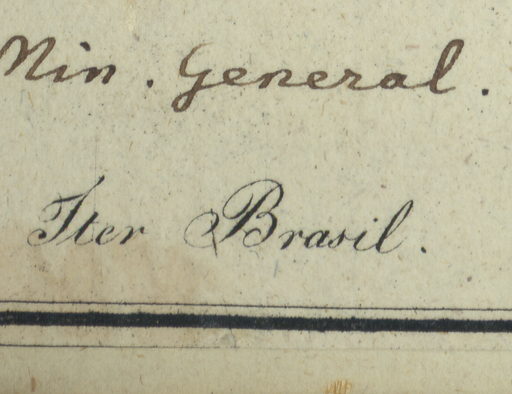 Min. General.
Iter Brasil.